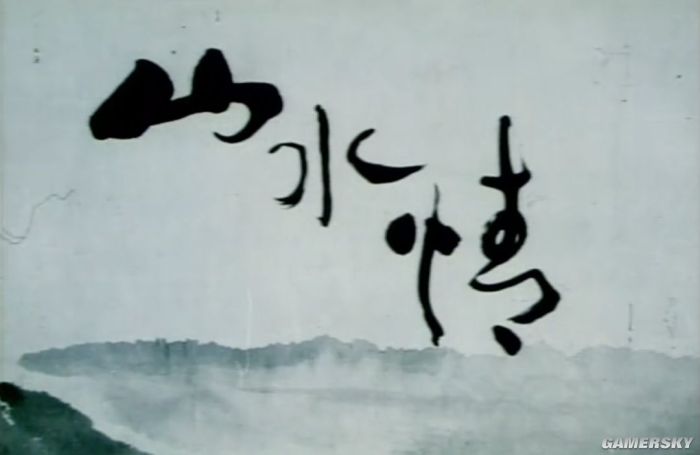 山水情
GAMERSKY